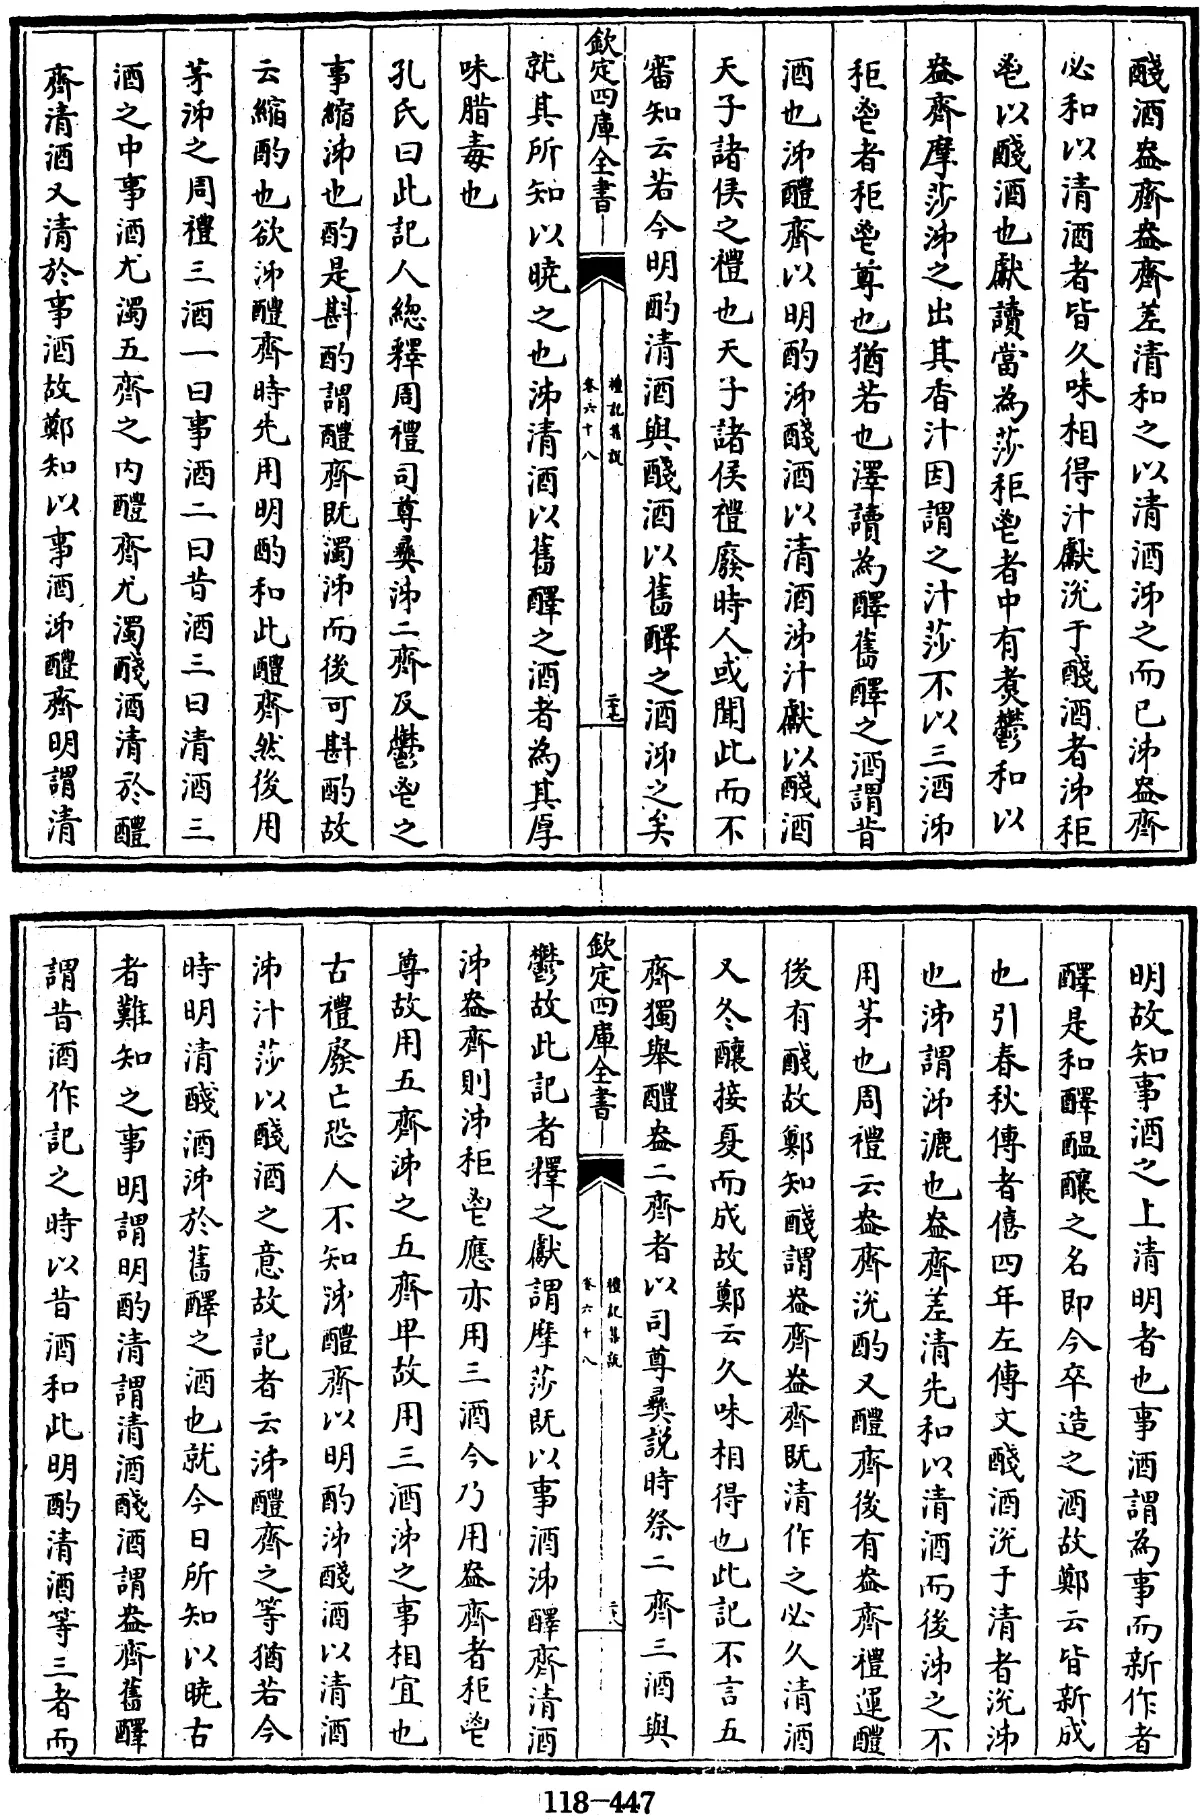 醆酒盎齊盎齊差清和之以清酒泲之而已泲盎齊
必和以清酒者皆久味相得汁獻涗于醆酒者泲秬
鬯以醆酒也獻讀當為莎秬鬯者中有煑鬱和以
盎齊摩莎泲之出其香汁因謂之汁莎不以三酒泲
秬鬯者秬鬯尊也猶若也澤讀為醳舊醳之酒謂昔
酒也泲醴齊以明酌泲醆酒以清酒泲汁獻以醆酒
天子諸侯之禮也天子諸侯禮廢時人或聞此而不
審知云若今明酌清酒與醆酒以舊醳之酒泲之矣
欽定四庫全書
禮記集說
卷六十八
二十七
就其所知以曉之也泲清酒以舊醳之酒者為其厚
味腊毒也
孔氏曰此記人總釋周禮司尊彞泲二齊及鬱鬯之
事縮泲也酌是斟酌謂醴齊既濁泲而後可斟酌故
云縮酌也欲泲醴齊時先用明酌和此醴齊然後用
茅泲之周禮三酒一曰事酒二曰昔酒三曰清酒三
酒之中事酒尤濁五齊之内醴齊尤濁醆酒清於醴
齊清酒又清於事酒故鄭知以事酒泲醴齊明謂清
明故知事酒之上清明者也事酒謂為事而新作者
醳是和醳醖釀之名即今卒造之酒故鄭云皆新成
也引春秋傳者僖四年左傳文醆酒涗于清者涗泲
也泲謂泲漉也盎齊差清先和以清酒而後泲之不
用茅也周禮云盎齊涗酌又醴齊後有盎齊禮運醴
後有醆故鄭知醆謂盎齊盎齊既清作之必久清酒
又冬釀接夏而成故鄭云久味相得也此記不言五
齊獨舉醴盎二齊者以司尊彞說時祭二齊三酒與
欽定四庫全書
禮記集說
卷六十八
二十八
鬱故此記者釋之獻謂摩莎既以事酒泲醳齊清酒
泲盎齊則泲秬鬯應亦用三酒今乃用盎齊者秬鬯
尊故用五齊泲之五齊卑故用三酒泲之事相宜也
古禮廢亡恐人不知泲醴齊以明酌泲醆酒以清酒
泲汁莎以醆酒之意故記者云泲醴齊之等猶若今
時明清醆酒泲於舊醳之酒也就今日所知以曉古
者難知之事明謂明酌清謂清酒醆酒謂盎齊舊醳
謂昔酒作記之時以昔酒和此明酌清酒等三者而
118-447